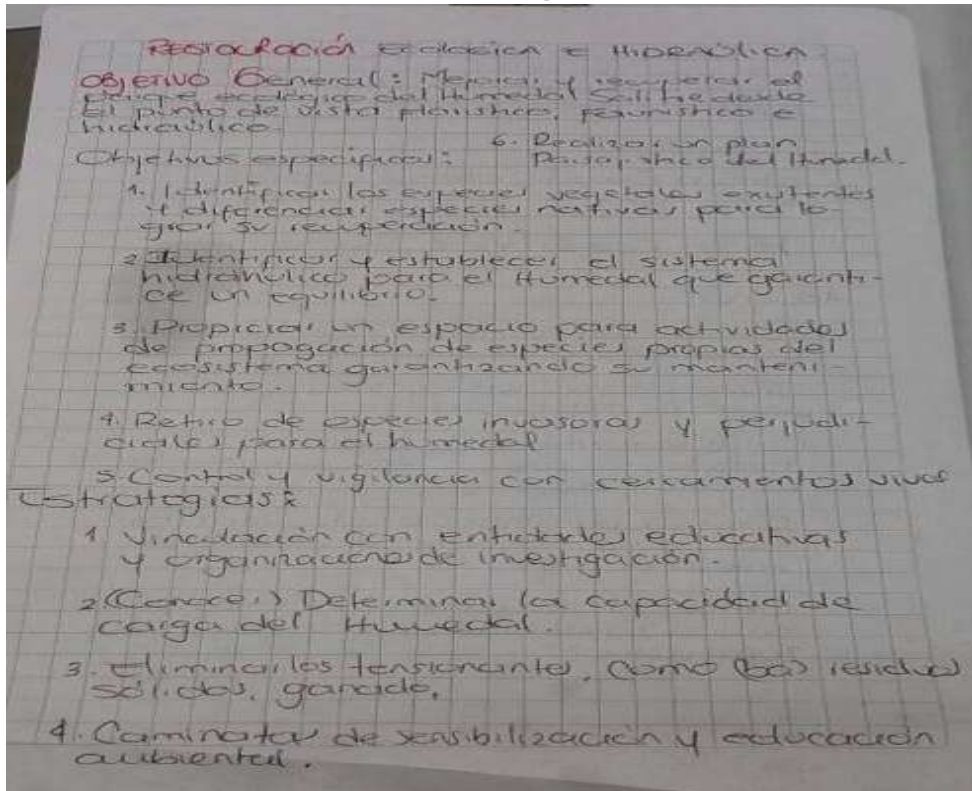 Restauración ecológica e Hidraúlica
Objetivo General: Mejorar y recuperar el
parque ecológico del Humedal Salitre desde
El punto de vista florístico, faunístico e
hidraúlico
6. Realizar un plan
Objetivos especificos: Paisajistico del Humedal.
1. Identificar las especies vegetales existentes
y diferenciar especies nativas para lo-
grar su recuperación.
2. Identificar y establecer el sistema
hidraúlico para el Humedal que garanti-
ce un equilibrio.
3. Propiciar un espacio para actividades
de propogación de especies propias del
ecosistema garantizando su manteni-
miento.
4. Retiro de especies invasoras y perjudi-
ciales para el humedal
5. Control y vigilancia con cercamientos vivos
Estrategias:
1 Vinculación con entidades educativas
y organizaciones de investigación.
2 (Conocer) Determinar la capacidad de
carga del Humedal.
3. Eliminar los tensionantes, como los residuos
sólidos, ganado.
4. Caminatas de sensibilización y educación
ambiental.